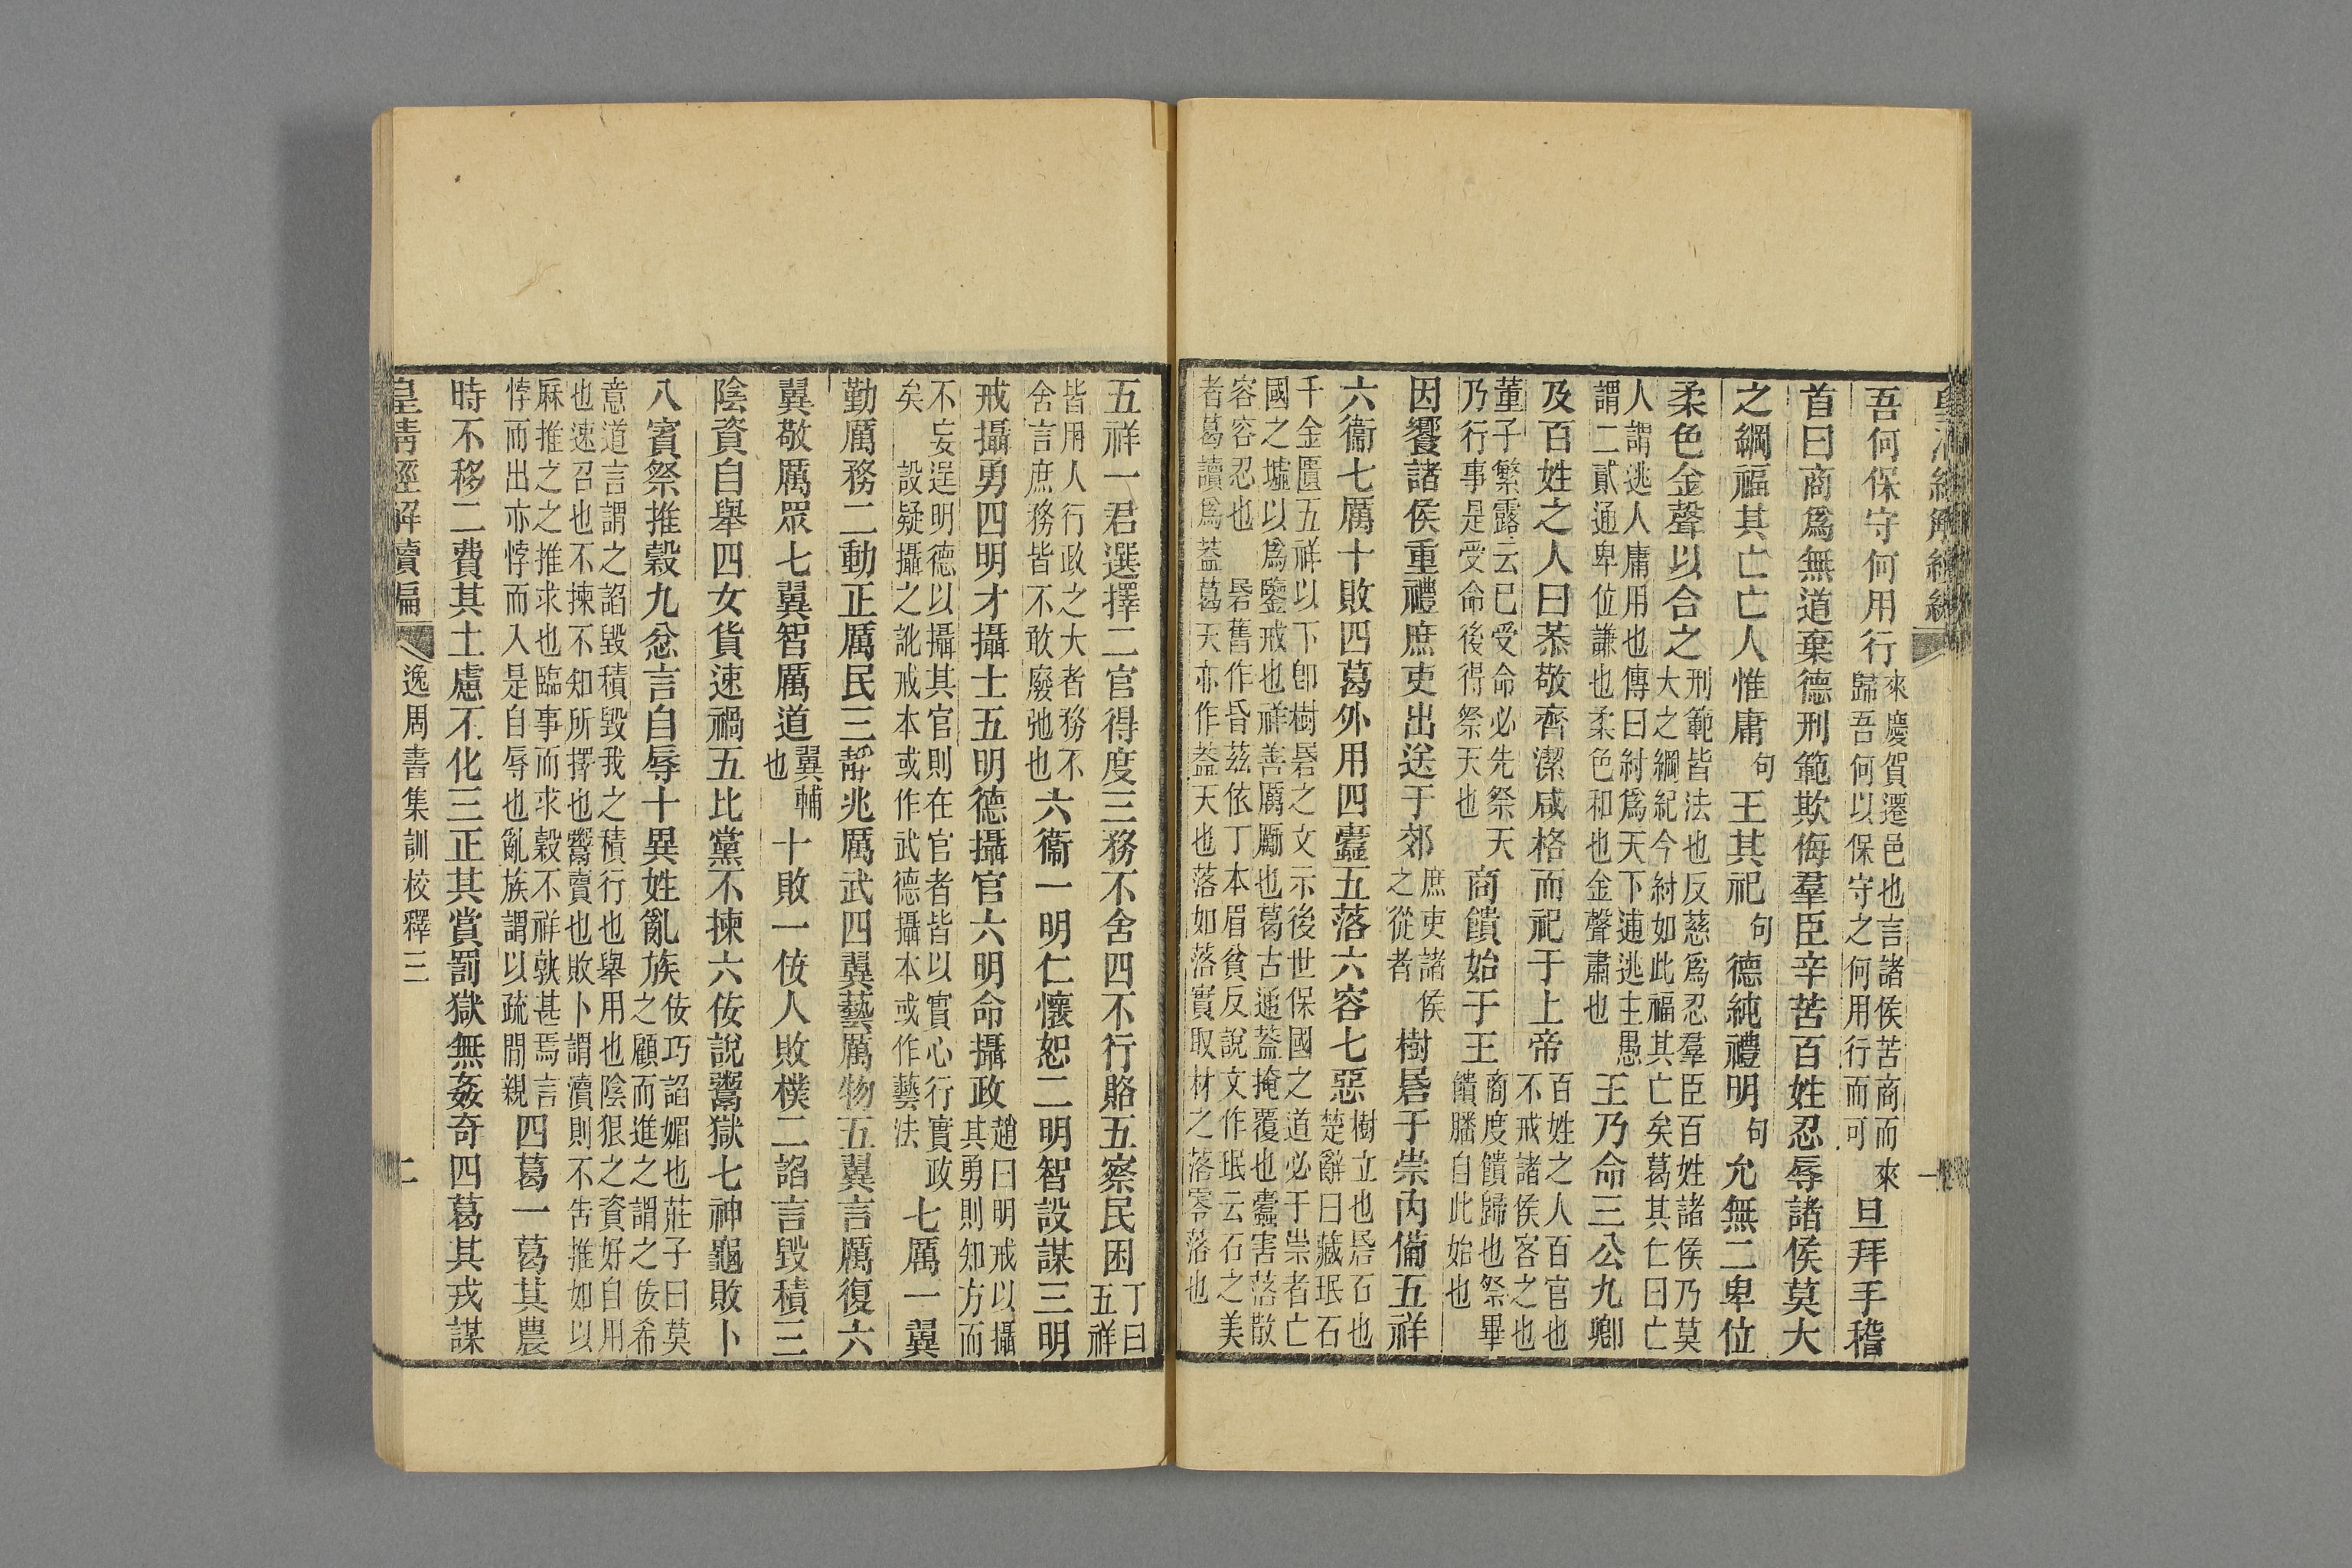 吾何保守何用行來慶賀遷邑也言諸侯苦商而來歸吾何以保守之何用行而可旦拜手稽
首曰商爲無道棄德刑範欺侮羣臣辛苦百姓忍辱諸侯莫大
之綱福其亡亡人惟庸句王其祀句德純禮明句允無二卑位
柔色金聲以合之刑範皆法也反慈爲忍羣臣百姓諸侯乃莫大之綱紀今紂如此福其亡矣葛其仁曰亡
人謂逃人庸用也傳曰紂爲天下逋逃主愚謂二貳通卑位謙也柔色和也金聲肅也王乃命三公九卿
及百姓之人曰恭敬齊潔咸格而祀于上帝百姓之人百官也不戒諸侯客之也
董子繁露云已受命必先祭天乃行事是受命後得祭天也商饋始于王商度饋歸也祭畢饋膰自此始也
因饗諸侯重禮庶吏出送于郊庶吏諸侯之從者樹昬于崇內備五祥
六衞七厲十敗四葛外用四蠹五落六容七惡樹立也昬石也楚辭曰藏珉石
千金匱五祥以下卽樹昬之文示後世保國之道必于崇者亡國之墟以爲鑒戒也祥善厲勵也葛古通蓋掩覆也蠹害落散
容容忍也　昬舊作昏茲依丁本眉貧反說文作珉云石之美者葛讀爲蓋葛天亦作蓋天也落如落實取材之落零落也
五祥一君選擇二官得度三務不舍四不行賂五察民困丁曰五祥
皆用人行政之大者務不舍言庶務皆不敢廢弛也六衞一明仁懷恕二明智設謀三明
戒攝勇四明才攝士五明德攝官六明命攝政趙曰明戒以攝其勇則知方而
不妄逞明德以攝其官則在官者皆以實心行實政矣　設疑攝之訛戒本或作武德攝本或作藝法七厲一翼
勤厲務二動正厲民三靜兆厲武四翼藝厲物五翼言厲復六
翼敬厲眾七翼智厲道翼輔也十敗一佞人敗樸二諂言毀積三
陰資自舉四女貨速禍五比黨不揀六佞說鬻獄七神龜敗卜
八賓祭推穀九忿言自辱十異姓亂族佞巧諂媚也莊子曰莫之顧而進之謂之佞希
意道言謂之諂毀積毀我之積行也舉用也陰狠之資好自用也速召也不揀不知所擇也鬻賣也敗卜謂瀆則不吿推如以
麻推之之推求也臨事而求穀不祥孰甚焉言悖而出亦悖而入是自辱也亂族謂以疏閒親四葛一葛其農
時不移二費其土慮不化三正其賞罰獄無姦奇四葛其戎謀
皇淸經解續編　逸周書集訓校釋三